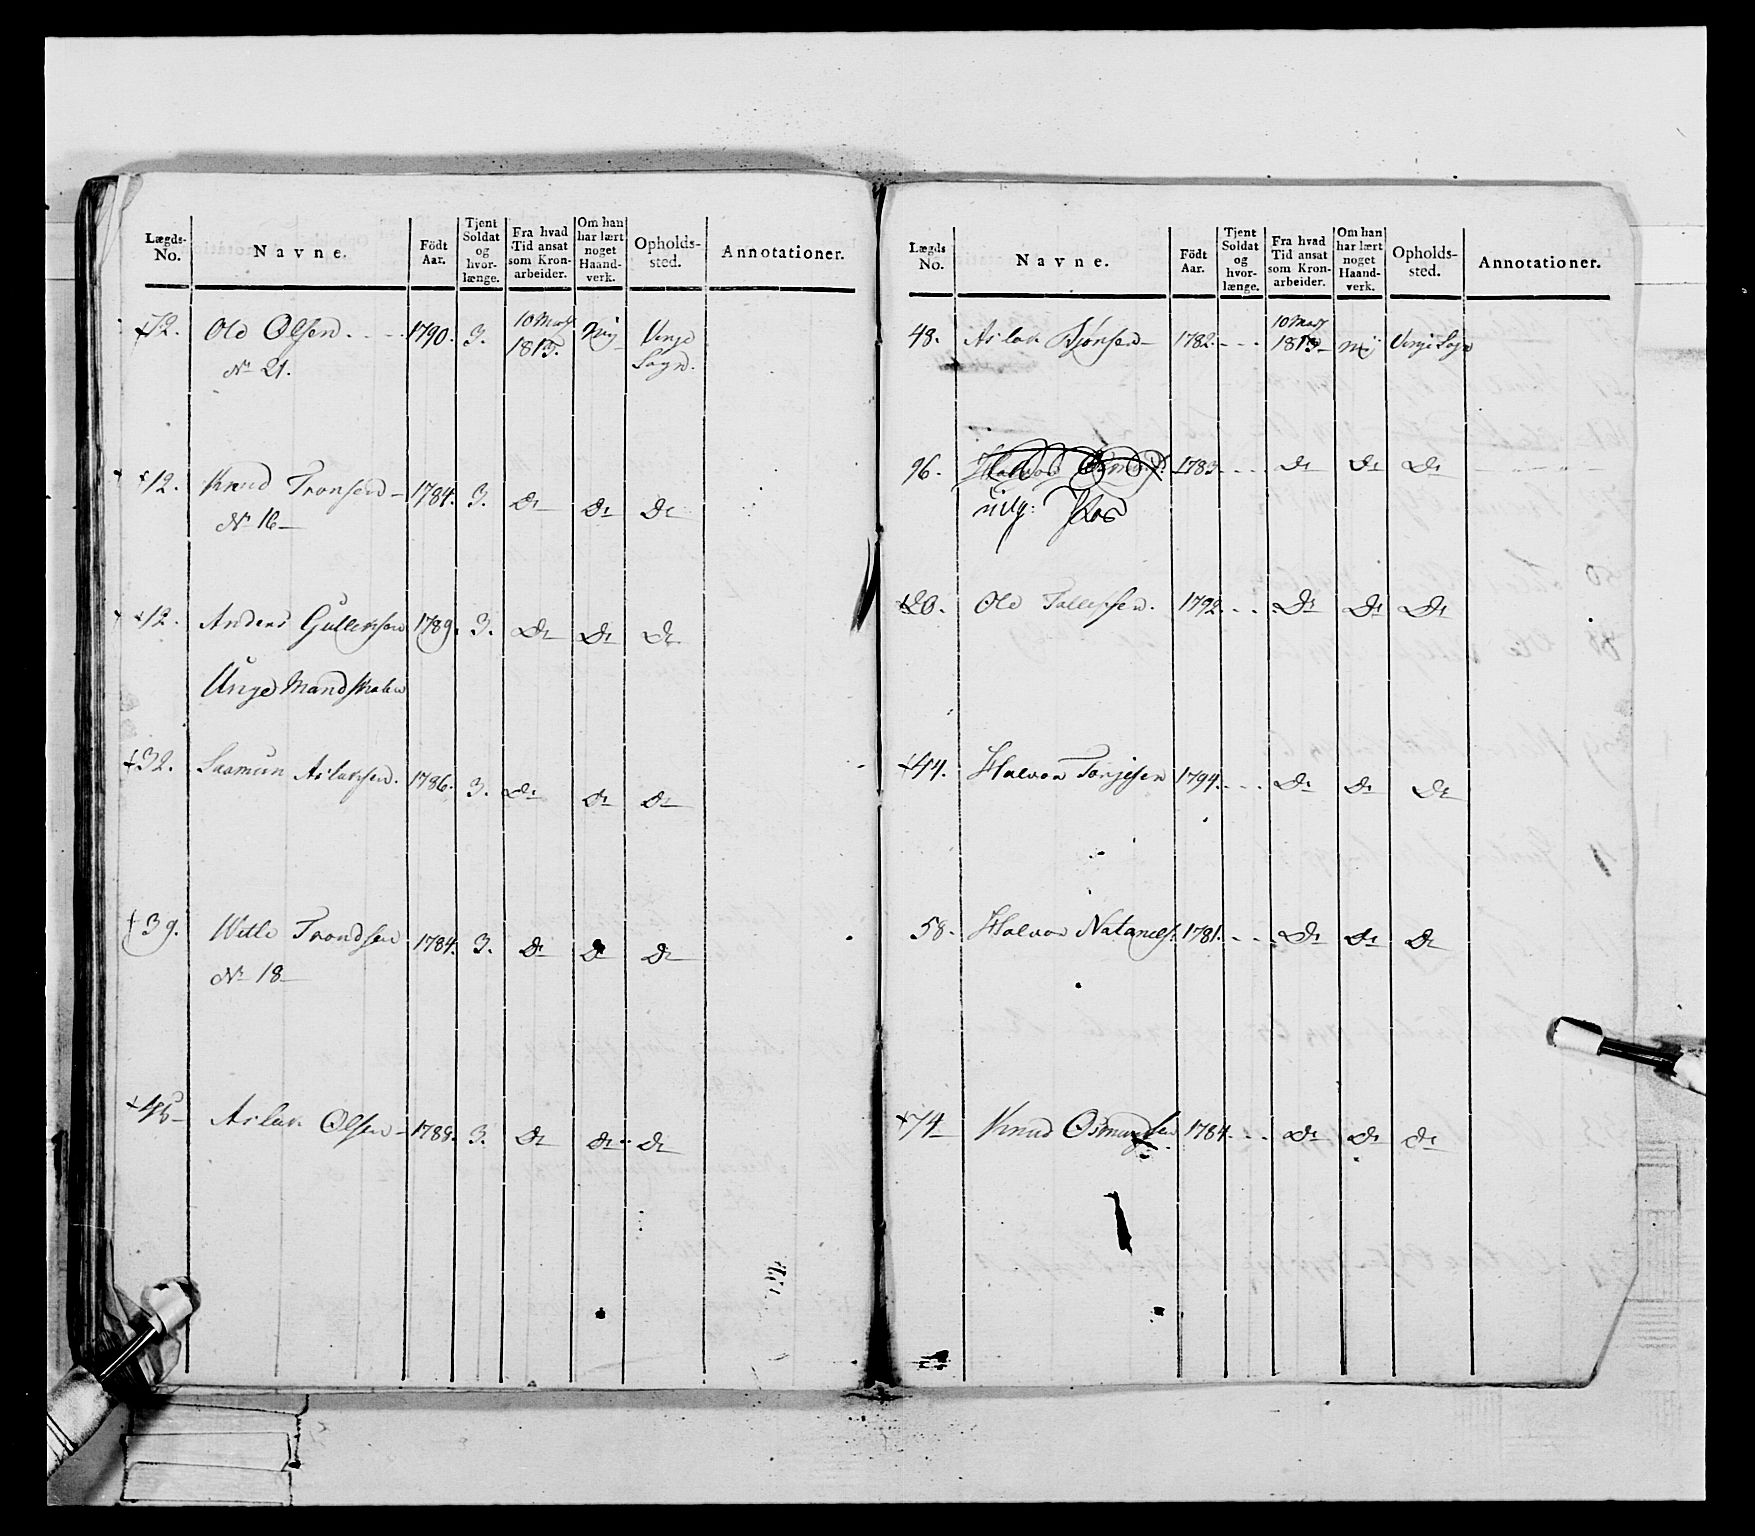 Lægds- No. | Navne. | Födt Aar. | Tjent Soldat og hvor- længe. | Fra hvad Tid ansat som Kron- arbeider. | Om han har lært noget Haand- verk. | Opholds- sted. | Annotationer.
72. Ole Olsen. 1790. 3. 10 May 1813. Nej Vinje Sogn.
No 21.
12. Knud Tronsen 1784. 3. Do Do Do
No 16
12. Anders Gullixsen 1789. 3. Do Do Do
Unge Mandskaber
32. Saamun Aslaksen. 1786. 3. Do Do Do
39. Wetle Trondsen 1784. 3. Do Do Do
No 18
Aslak Olsen 1788. 3. Do Do Do
Lægds No. | Navne. | Födt Aar. | Tjent Soldat og hvor- længe. | Fra hvad Tid ansat som Kron- arbeider. | Om han har lært noget Haand- verk. | Opholds- sted. | Annotationer.
48. Aslak Bjønsen 1782. 10 May 1813 nej Vinje Sogn
96. Halvor 1783. Do Do Do
20. Ole Tallefsen. 1792. Do Do Do
44. Halvor Torjesen 1794. Do Do Do
58. Halvor Natanels. 1781. Do Do Do
74 Knud Osmundsen 1784. Do Do Do